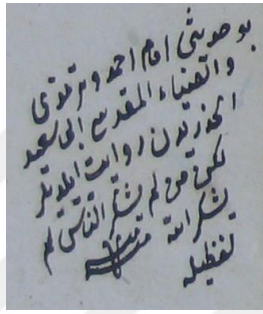 بو حديثى امام احمد و ترمذى
والضياء المقدسى ابى سعيد
الخدريدن روايت ايلديلر
لكن من لم يشكر الناس لم
يشكر الله